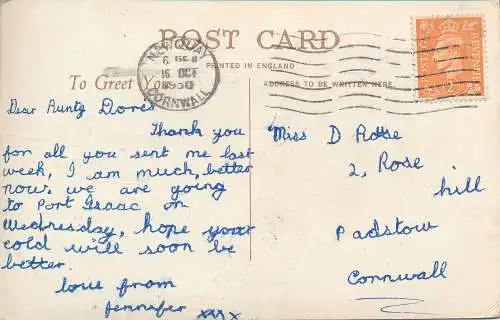 POST CARD
PRINTED IN ENGLAND
To Greet You
ADDRESS TO BE WRITTEN HERE.
NEWQUAY
16 OCT
1950
CORNWALL
Dear Aunty Dores
Thank you
for all you sent me last
week, I am much, better
now, we are going
to Port Isaac on
Wednesday, hope your
cold will soon be
better.
love from
Jennifer xxx x
Miss D Rose
2, Rose
hill
Padstow
Cornwall